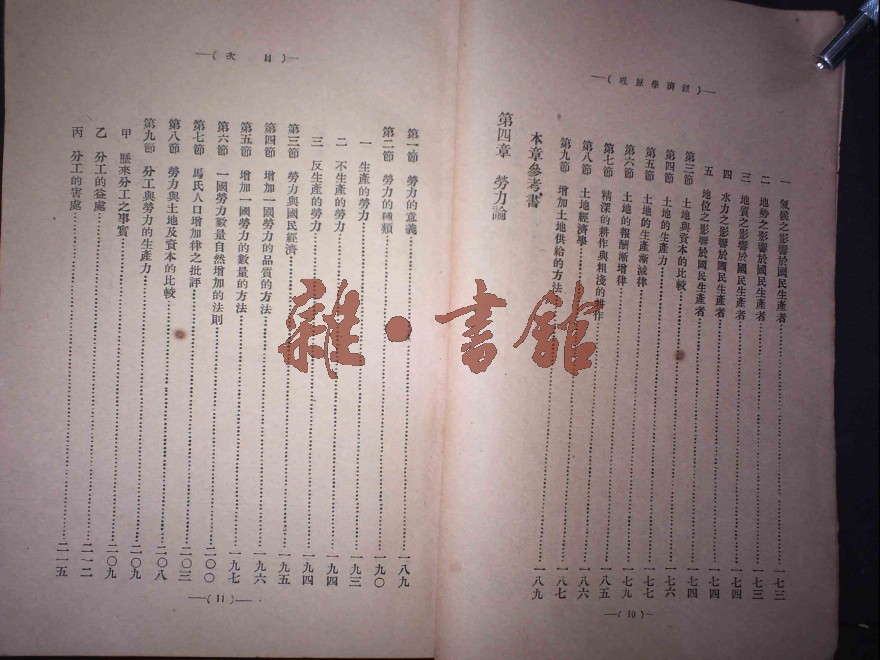 —(經濟學原理)—
一 氣候之影響於國民生產者……一七三
二 地勢之影響於國民生產者……一七三
三 地質之影響於國民生產者……一七四
四 水力之影響於國民生產者……一七四
五 地位之影響於國民生產者……一七四
第三節 土地與資本的比較……一七四
第四節 土地的生產力……一七六
第五節 土地的生產漸減律……一七七
第六節 土地的報酬漸增律……一七九
第七節 精深的耕作與粗淺的耕作……一八五
第八節 土地經濟學……一八六
第九節 增加土地供給的方法……一八七
本章參考書……一八九
第四章 勞力論
—(10)—
—(目次)—
第一節 勞力的意義……一八九
第二節 勞力的種類……一九〇
一 生產的勞力……一九三
二 不生產的勞力……一九四
三 反生產的勞力……一九四
第三節 勞力與國民經濟……一九五
第四節 增加一國勞力的品質的方法……一九六
第五節 增加一國勞力的數量的方法……一九七
第六節 一國勞力數量自然增加的法則……二〇〇
第七節 馬氏人口增加律之批評……二〇三
第八節 勞力與土地及資本的比較……二〇八
第九節 分工與勞力的生產力……二〇九
甲 歷來分工之事實……二〇九
乙 分工的益處……二一二
丙 分工的害處……二一五
—(11)—
雜·書館